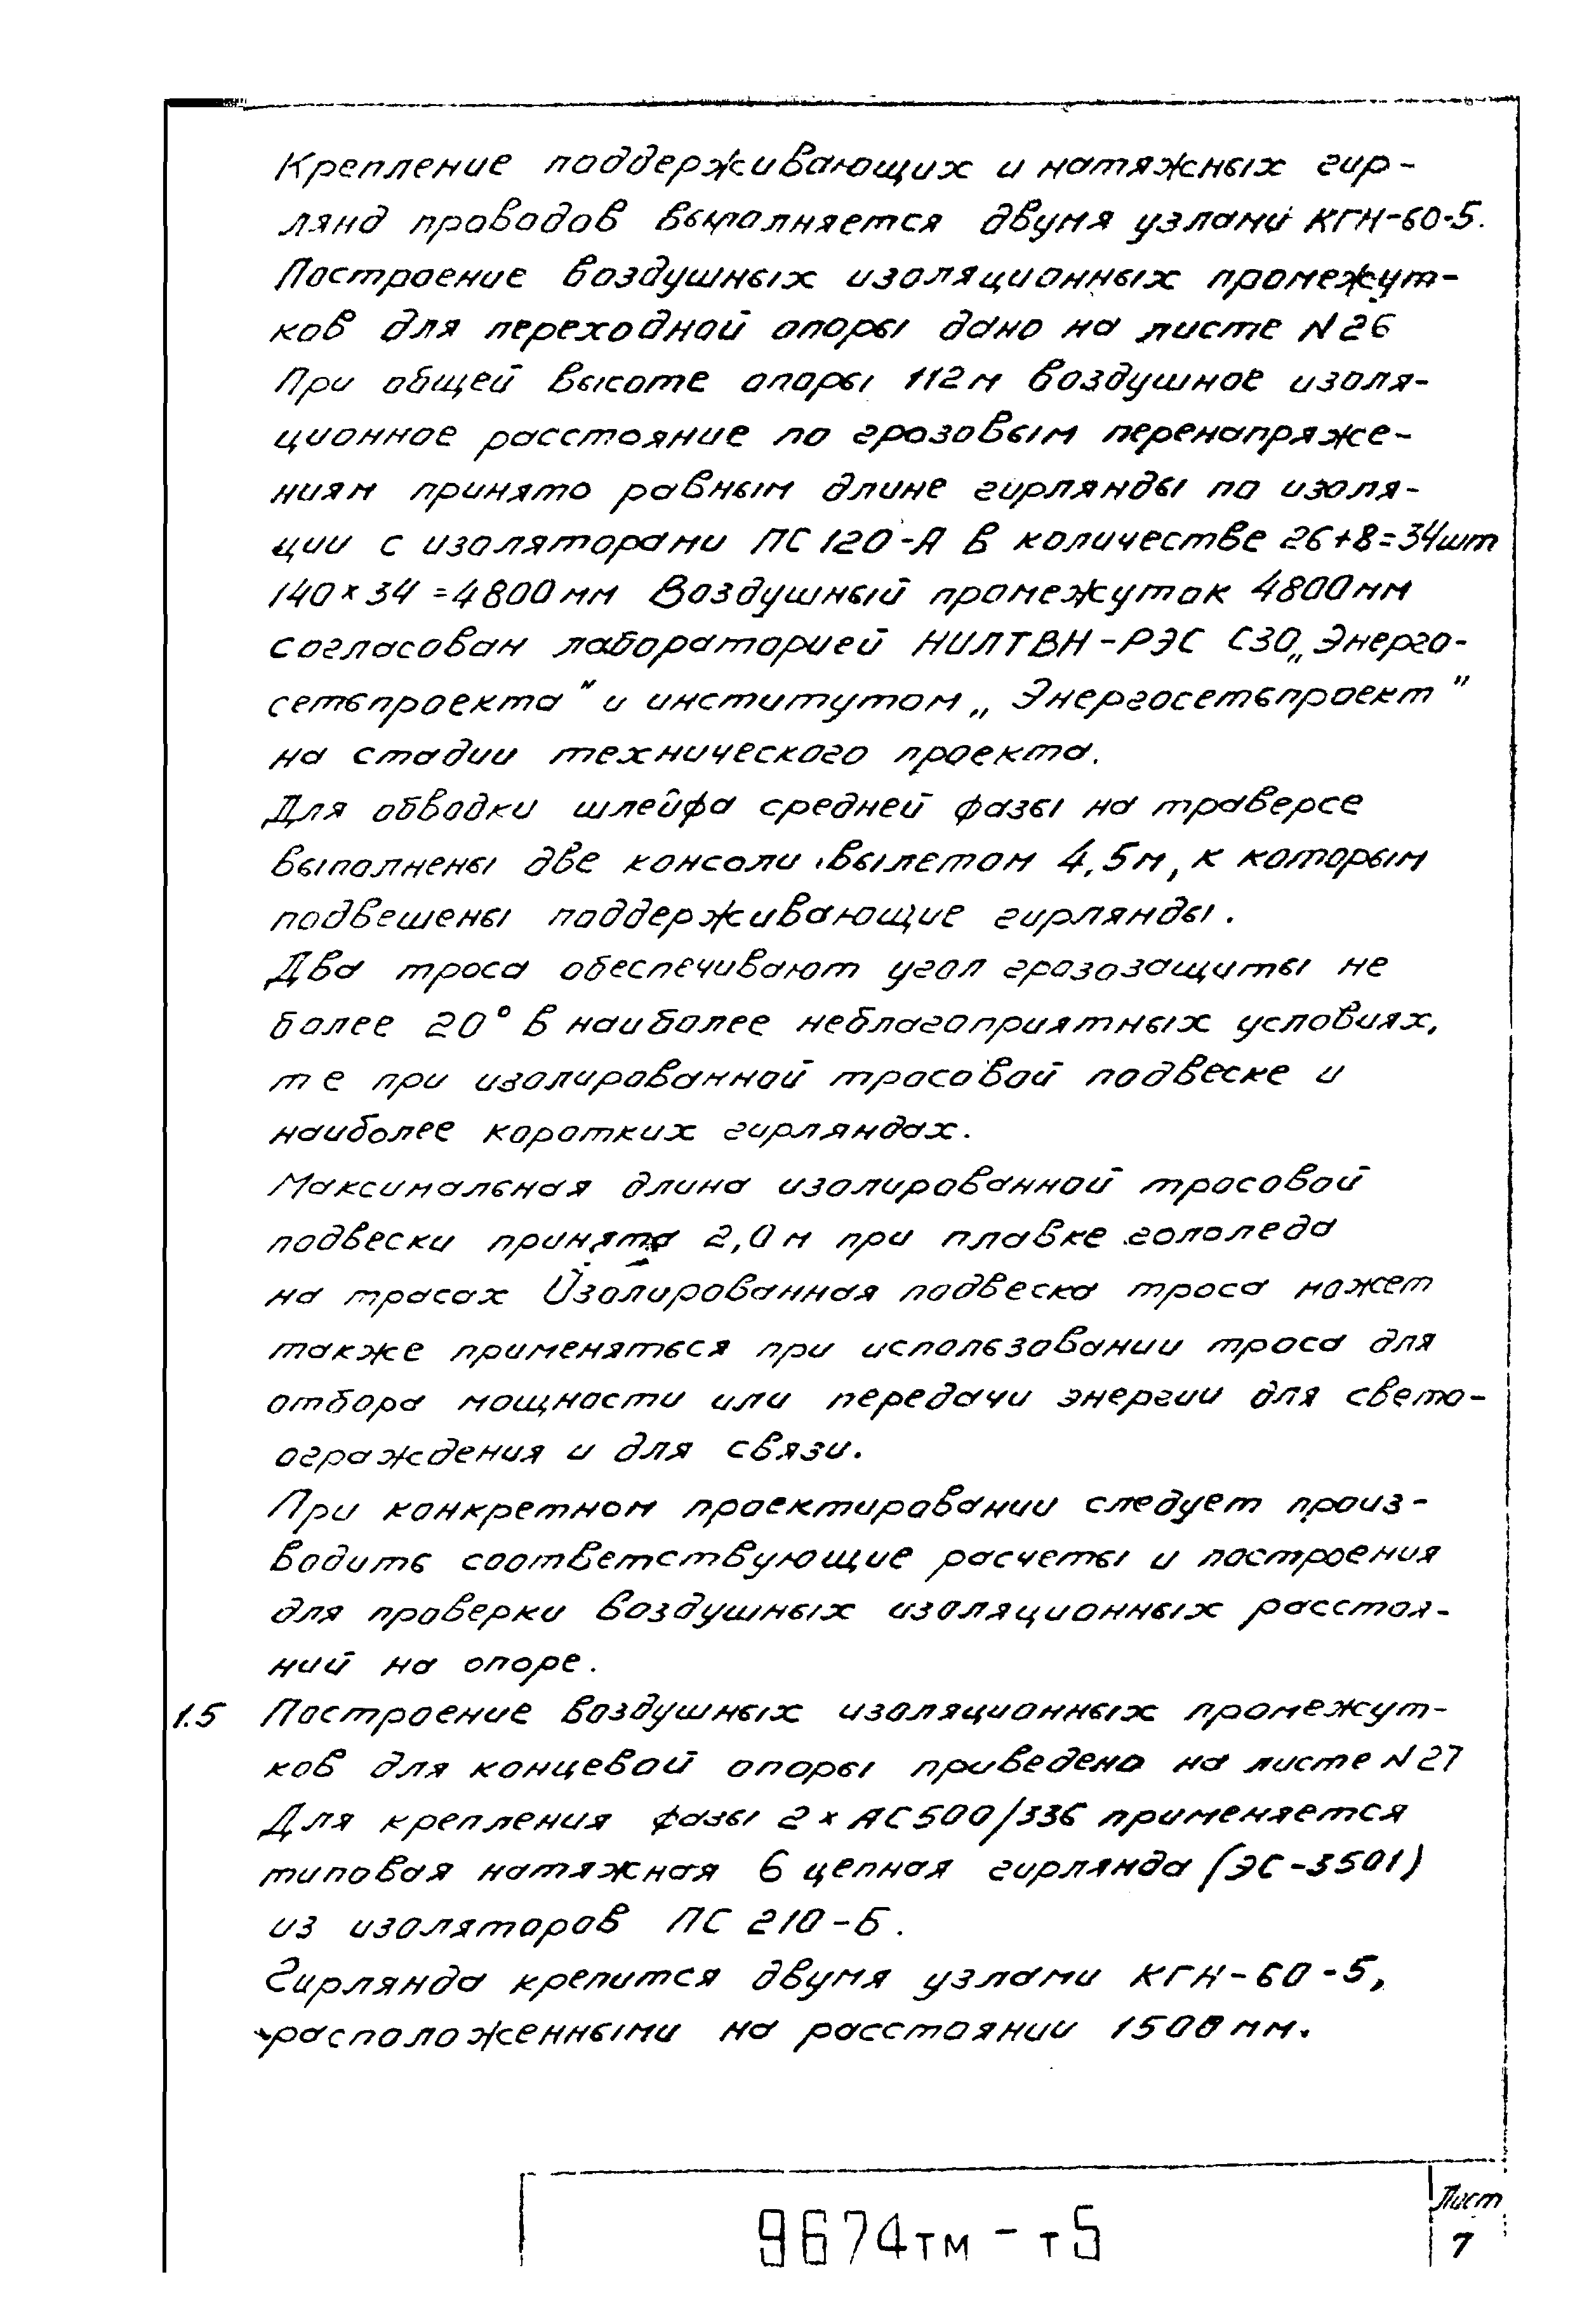 Крепление поддерживающих и натяжных гир-
лянд проводов выполняется двумя узлами КГН-60-5.
Построение воздушных изоляционных промежут-
ков для переходной опоры дано на листе N26
При общей высоте опоры 112м воздушное изоля-
ционное расстояние по грозовым перенапряже-
ниям принято равным длине гирлянды по изоля-
ции с изоляторами ПС 120-А в количестве 26+8=34шт
140×34=4800мм Воздушный промежуток 4800мм
согласован лабораторией НИЛТВН-РЭС СЗО „Энерго-
сетьпроекта" и институтом „Энергосетьпроект"
на стадии технического проекта.
Для обводки шлейфа средней фазы на траверсе
выполнены две консоли вылетом 4,5м, к которым
подвешены поддерживающие гирлянды.
Два троса обеспечивают угол грозозащиты не
более 20° в наиболее неблагоприятных условиях,
т е при изолированной тросовой подвеске и
наиболее коротких гирляндах.
Максимальная длина изолированной тросовой
подвески принята 2,0м при плавке гололеда
на тросах Изолированная подвеска троса может
также применяться при использовании троса для
отбора мощности или передачи энергии для свето-
ограждения и для связи.
При конкретном проектировании следует произ-
водить соответствующие расчеты и построения
для проверки воздушных изоляционных расстоя-
ний на опоре.
1.5 Построение воздушных изоляционных промежут-
ков для концевой опоры приведено на листе N27
Для крепления фазы 2×АС500/336 применяется
типовая натяжная 6 цепная гирлянда (ЭС-3501)
из изоляторов ПС 210-Б.
Гирлянда крепится двумя узлами КГН-60-5,
расположенными на расстоянии 1500мм.
9674тм-т5
Лист
7